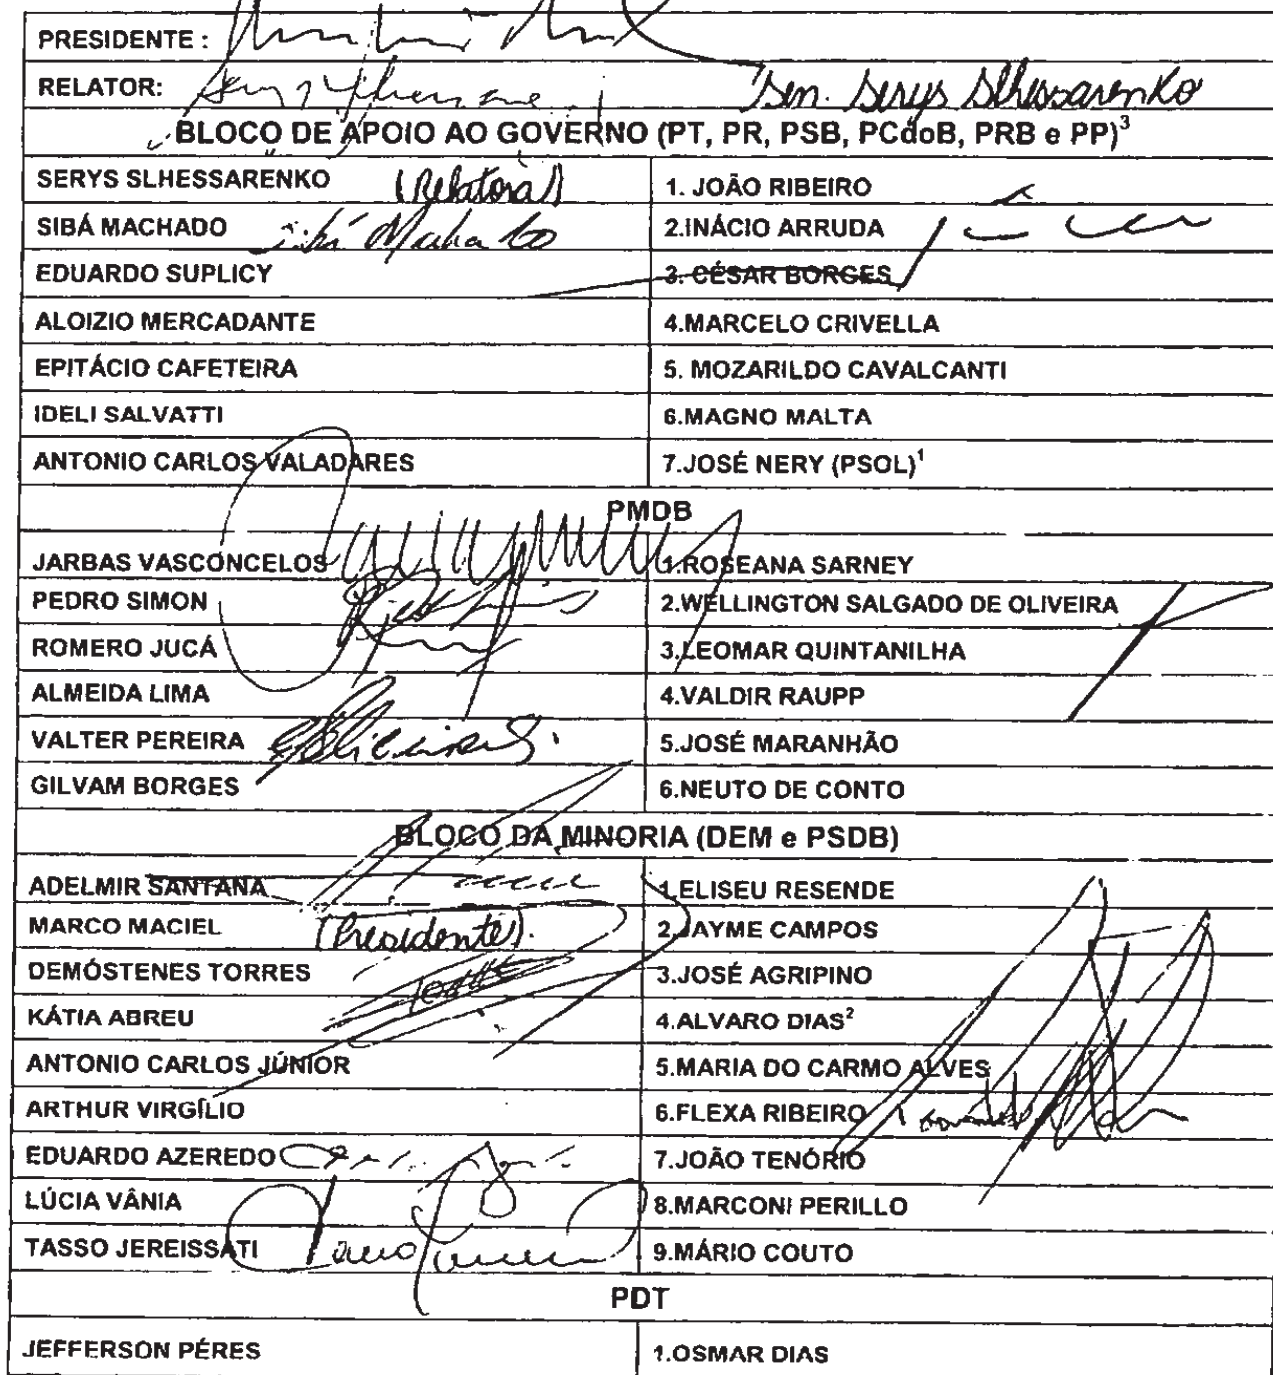 PRESIDENTE :
RELATOR: Sen. Serys Slhessarenko
BLOCO DE APOIO AO GOVERNO (PT, PR, PSB, PCdoB, PRB e PP)³
SERYS SLHESSARENKO (Relatora) 1. JOÃO RIBEIRO
SIBÁ MACHADO Sibá Machado 2.INÁCIO ARRUDA
EDUARDO SUPLICY 3. CÉSAR BORGES
ALOIZIO MERCADANTE 4.MARCELO CRIVELLA
EPITÁCIO CAFETEIRA 5. MOZARILDO CAVALCANTI
IDELI SALVATTI 6.MAGNO MALTA
ANTONIO CARLOS VALADARES 7.JOSÉ NERY (PSOL)¹
PMDB
JARBAS VASCONCELOS 1.ROSEANA SARNEY
PEDRO SIMON 2.WELLINGTON SALGADO DE OLIVEIRA
ROMERO JUCÁ 3.LEOMAR QUINTANILHA
ALMEIDA LIMA 4.VALDIR RAUPP
VALTER PEREIRA 5.JOSÉ MARANHÃO
GILVAM BORGES 6.NEUTO DE CONTO
BLOCO DA MINORIA (DEM e PSDB)
ADELMIR SANTANA 1.ELISEU RESENDE
MARCO MACIEL (Presidente). 2.JAYME CAMPOS
DEMÓSTENES TORRES 3.JOSÉ AGRIPINO
KÁTIA ABREU 4.ALVARO DIAS²
ANTONIO CARLOS JÚNIOR 5.MARIA DO CARMO ALVES
ARTHUR VIRGÍLIO 6.FLEXA RIBEIRO
EDUARDO AZEREDO 7.JOÃO TENÓRIO
LÚCIA VÂNIA 8.MARCONI PERILLO
TASSO JEREISSATI 9.MÁRIO COUTO
PDT
JEFFERSON PÉRES 1.OSMAR DIAS